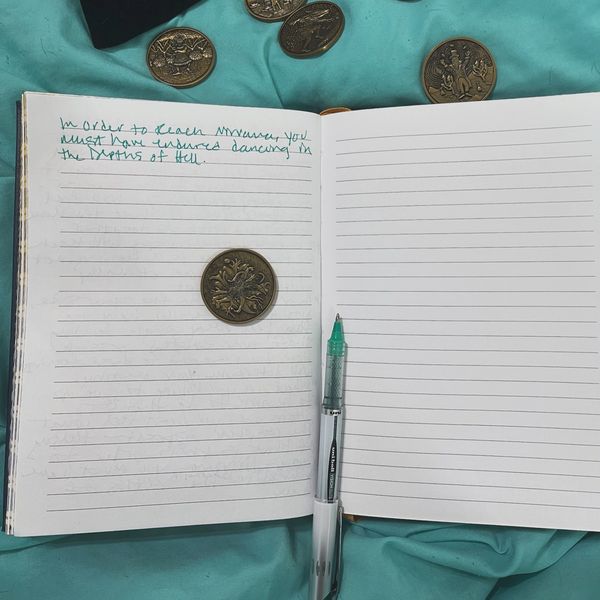 In order to Reach Nirvana, you
must have endured dancing in
the Depths of Hell.
uni-ball
VISION